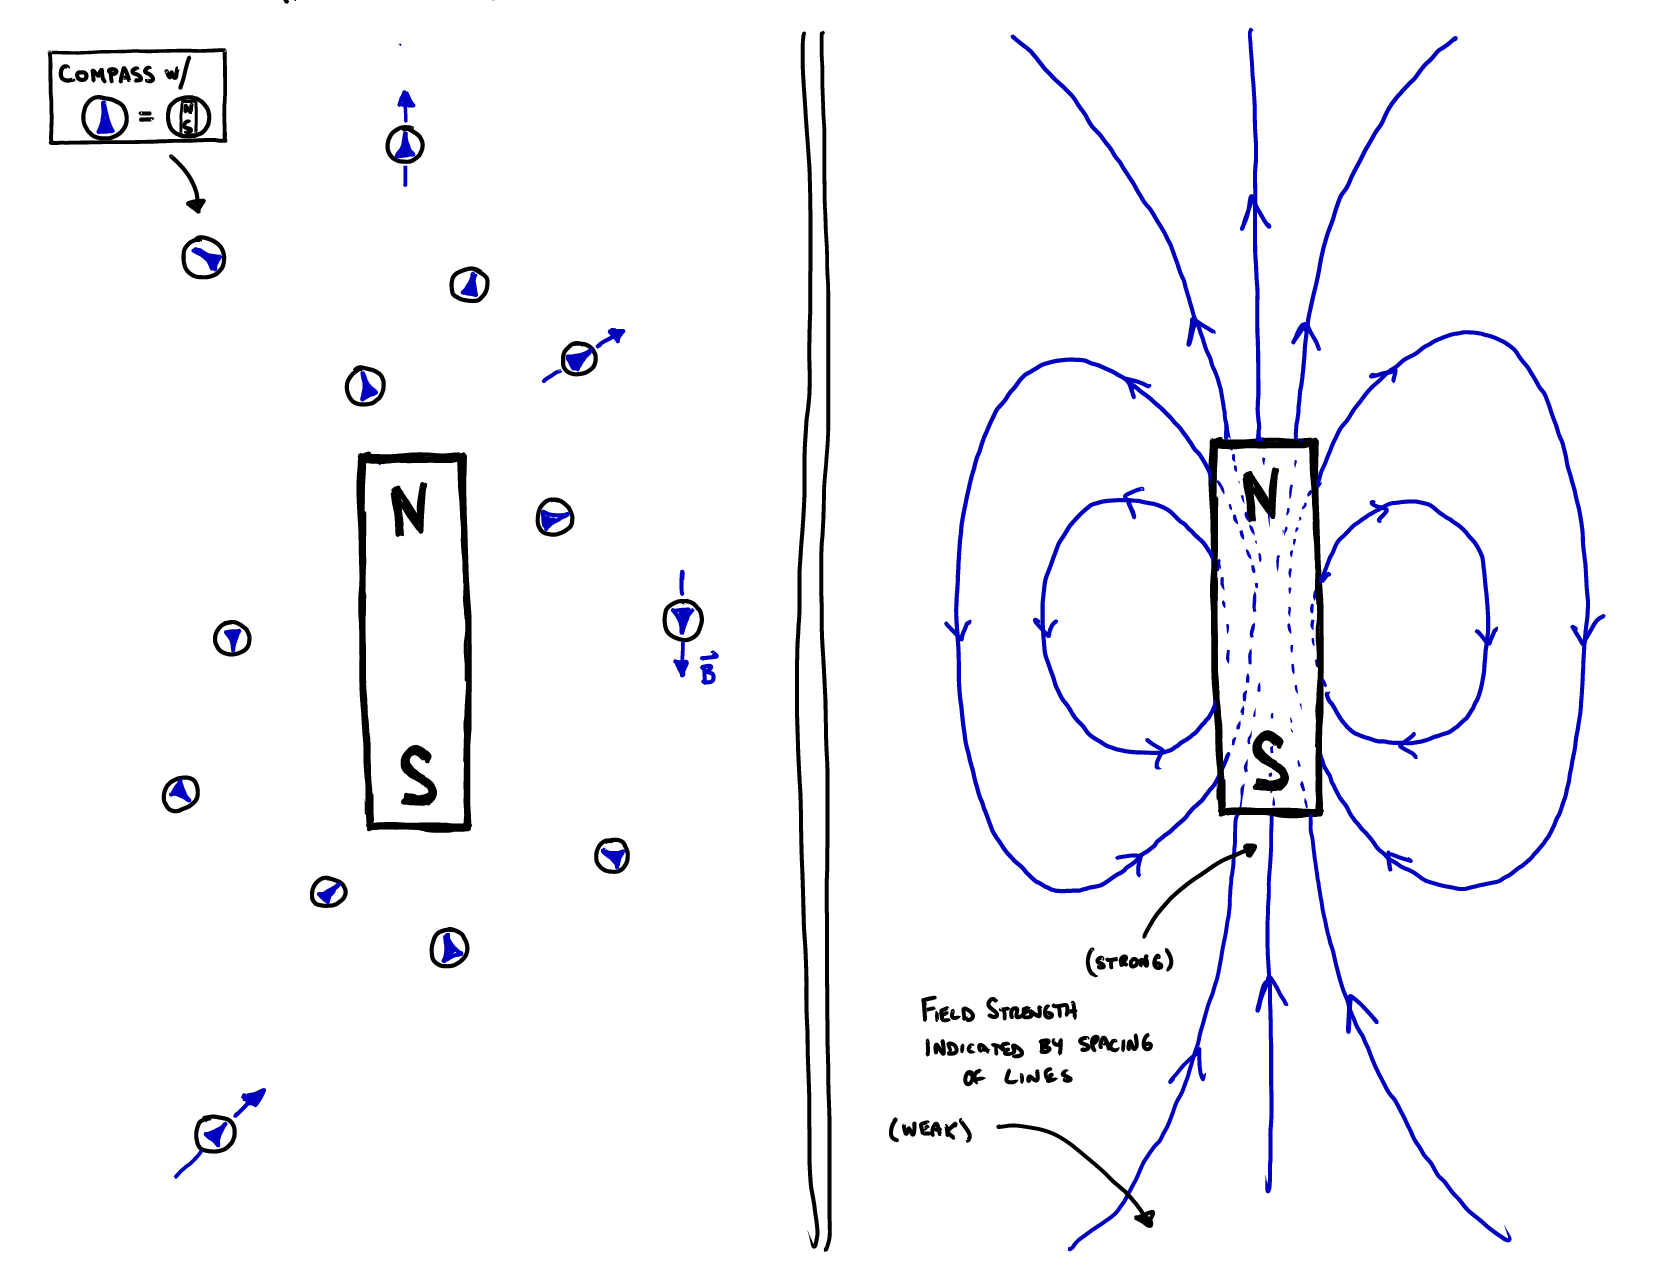 COMPASS w/
= N
S
N
S
B
N
S
(STRONG)
FIELD STRENGTH
INDICATED BY SPACING
OF LINES
(WEAK)